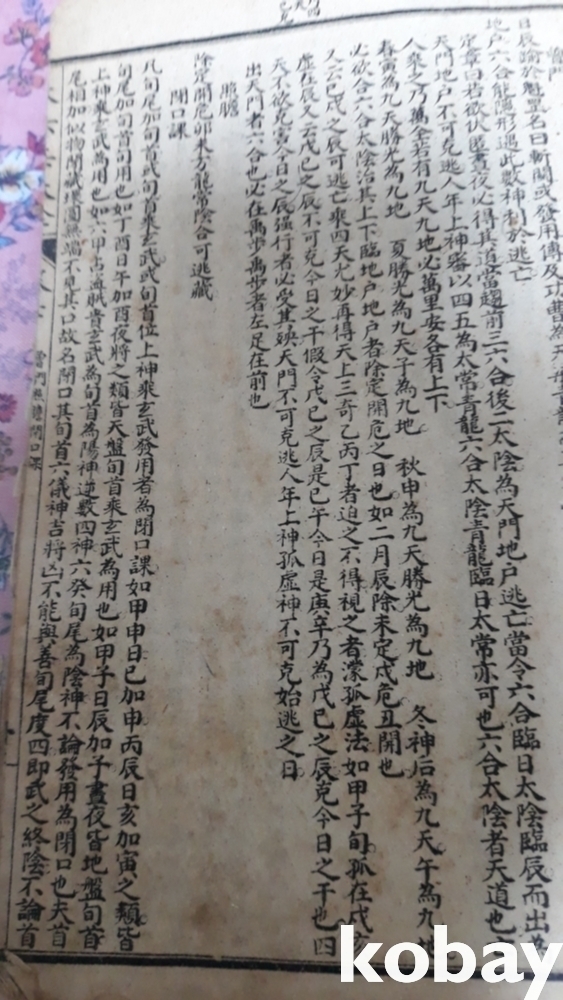 日辰論於魁罡名曰斬關或發用傳及功曹為天
地戶六合能隱形遇此數神利於逃亡
定章曰若欲伏匿晝夜必得其道當趨前三六合後二太陰為天門地戶逃亡當令六合臨日太陰臨辰而出為
天門地戶不可克逃人年上神審以四五為太常青龍六合太陰青龍臨日太常亦可也六合太陰者天道也
人乘之乃萬全若有九天九地必萬里安各有上下
春寅為九天勝光為九地 夏勝光為九天子為九地 秋申為九天勝光為九地 冬神后為九天午為九地
必欲合六合太陰治其上下臨地戶地戶者除定開危之日也如二月辰除未定戌危丑開也
又云己戌之辰可逃亡乘四天尤妙再得天上三奇乙丙丁者迫之不得視之者濛孤虛法如甲子旬孤在戌亥
虛在辰又云戊己之辰不可克今日之干假令戊己之辰是巳午今日是庚辛乃為戊己之辰克今日之干也四
天不欲克寅今日之辰強行者必受其殃天門不可克逃人年上神孤虛神不可克始逃之日
出天門者六合也必在禹步禹步者左足在前也
除定開危卯未方龍常陰合可逃藏
閉口課
凡旬尾加旬首或旬首乘玄武武旬首位上神乘玄武發用者為閉口課如甲申日巳加申丙辰日亥加寅之類皆
旬尾加旬首旬用也如丁酉日午加酉夜將之類皆天盤旬首乘玄武為用也如甲子日辰加子晝夜皆地盤旬首
上神乘玄武為用也如六甲占盜賊責玄武為旬首為陽神逆數四神六癸旬尾為陰神不論發用為閉口也夫首
尾相加似物閉緘環圓無端不見其口故名閉口其旬首六儀神吉將凶不能與善旬尾度四即武之終陰不論首
閉口課
kobay